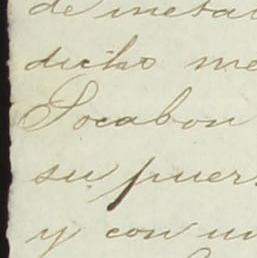 de metal
dicho me
Socabon
su puer
y con un